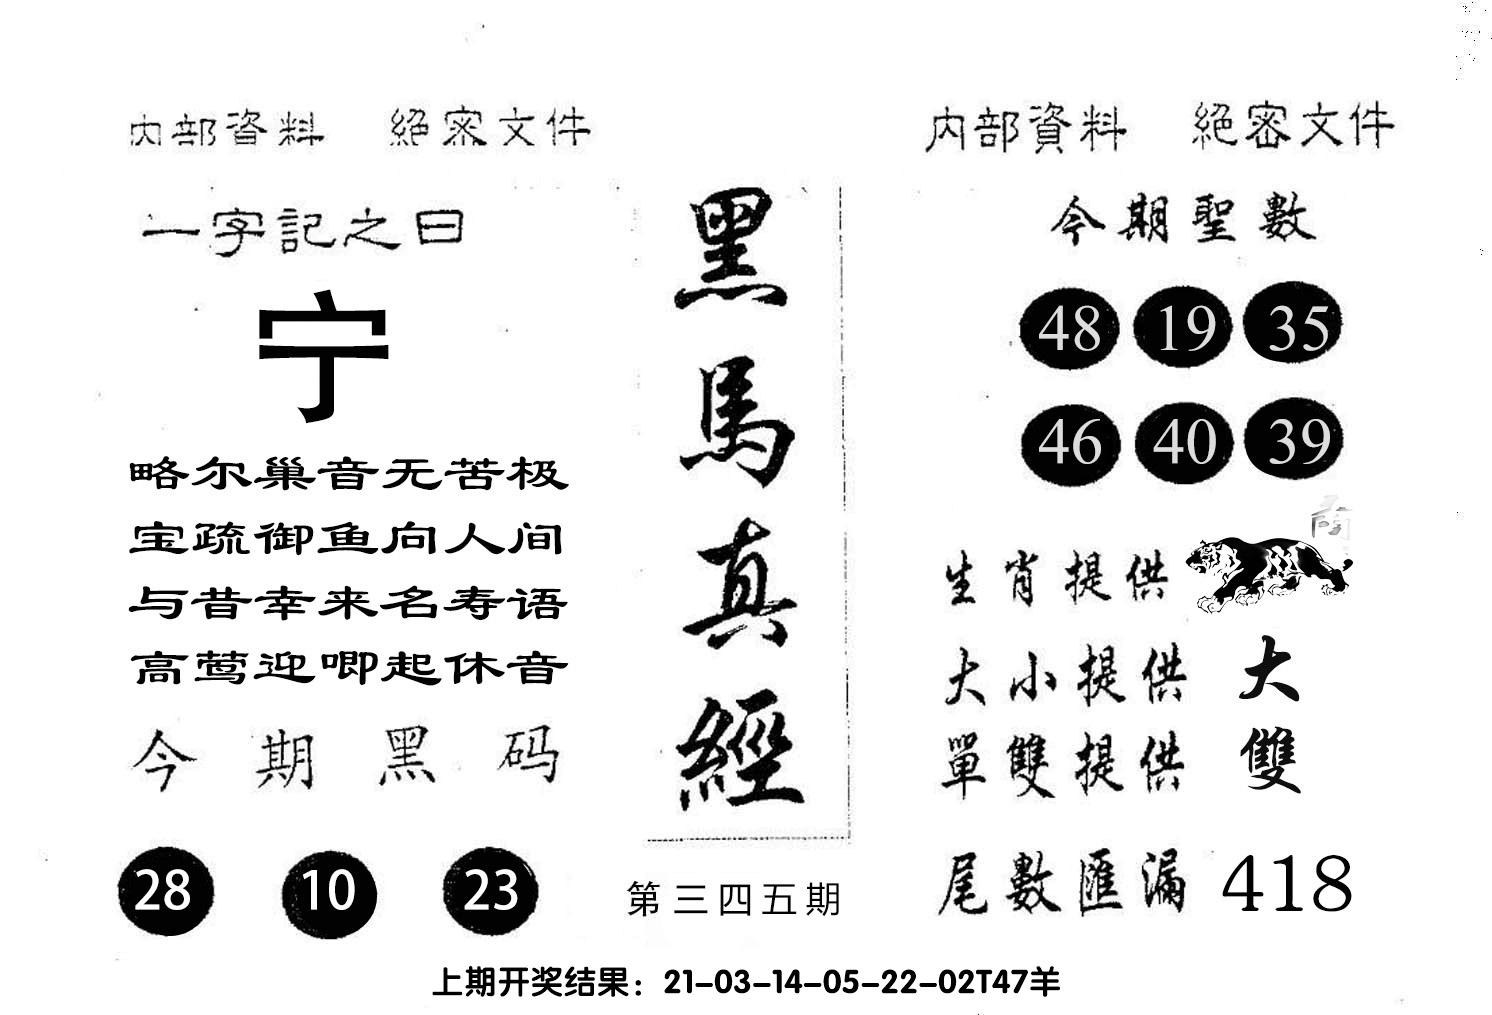 内部資料 絕密文件
一字記之曰
宁
略尔巢音无苦极
宝疏御鱼向人间
与昔幸来名寿语
高莺迎唧起休音
今期黑码
28 10 23
黑馬真經
第三四五期
内部資料 絕密文件
今期聖數
48 19 35
46 40 39
生肖提供
大小提供 大
單雙提供 雙
尾數匯漏 418
上期开奖结果：21-03-14-05-22-02T47羊